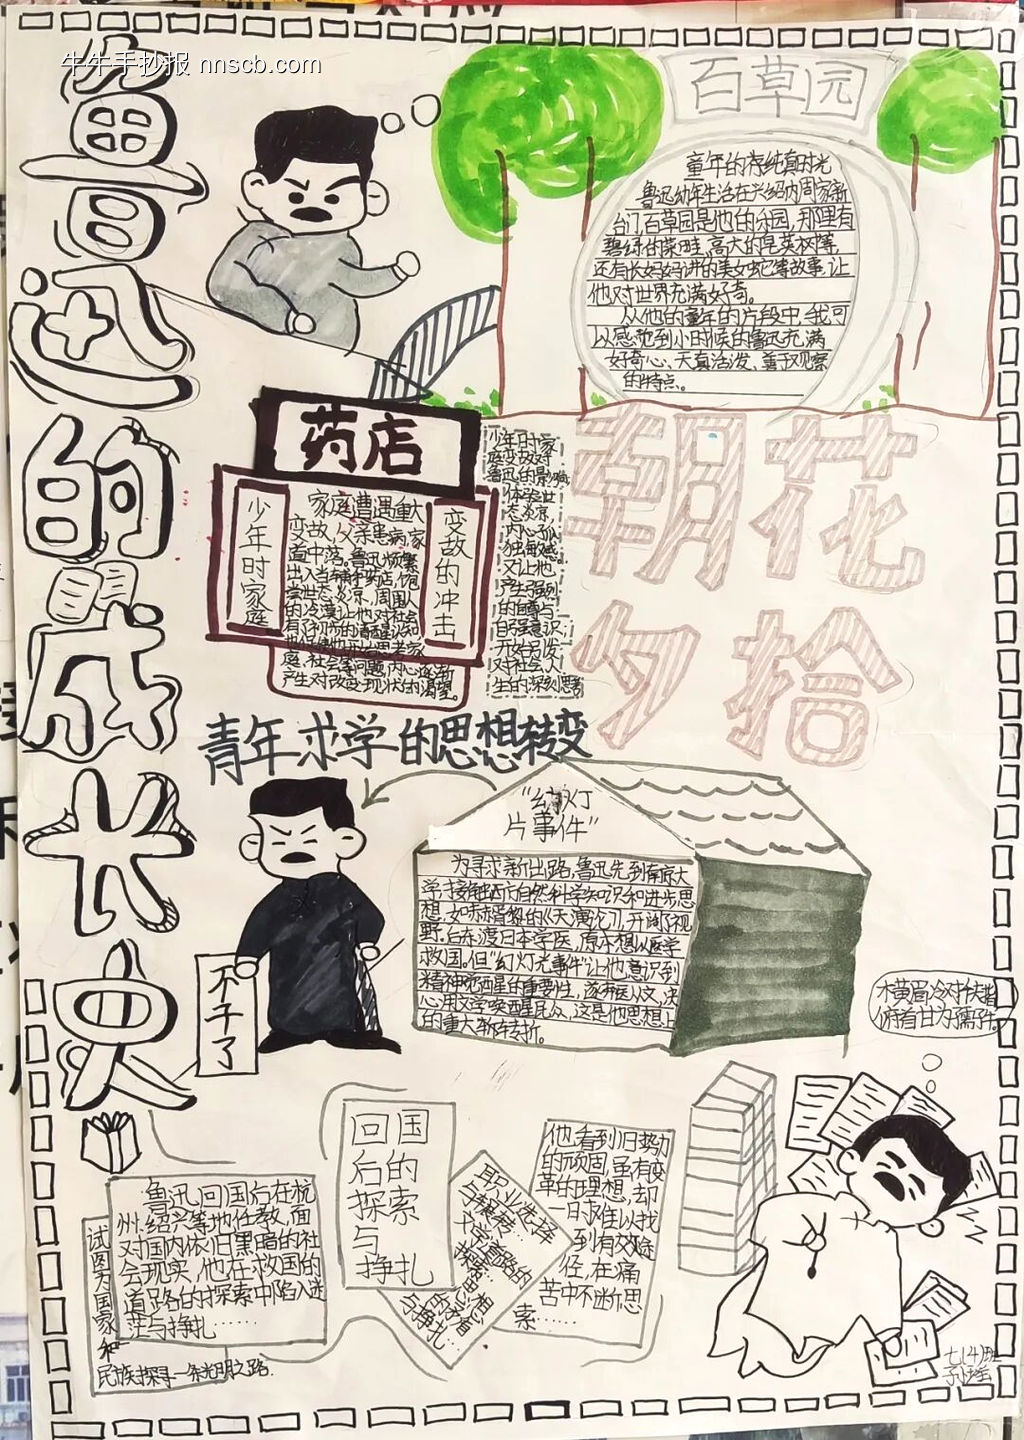 牛牛手抄报 nnscb.com
鲁迅的成长史
百草园
童年的纯真时光
鲁迅幼年生活在兴绍内周家新
台门百草园是他的乐园,那里有
碧绿的菜畦,高大的皂荚树等,
还有长妈妈讲的美女蛇等故事,让
他对世界充满好奇。
从他的童年的片段中,我可
以感觉到小时候的鲁迅充满
好奇心、天真活泼、善于观察
的特点。
药店
少年时家庭
变故的冲击
家庭遭遇重大
变故,父亲患病,家
道中落。鲁迅频繁
出入当铺和药店,饱
尝世态炎凉,周围人
的冷漠让他对社会
有了初步的清醒认知
庭、社会等问题,内心逐渐
产生对改变现状的渴望。
少年时家
庭变故对
鲁迅的影响
体验世
态炎凉,
内心孤
独敏感。
又让他
产生强烈
的自尊与
自强意识,
开始引发
对社会、人
生的深刻思考
朝花
夕拾
青年求学的思想转变
"幻灯
片事件"
为寻求新出路,鲁迅先到南京大
学,接触西方自然科学知识和进步思
想,如赫胥黎的《天演论》,开阔了视
野。后东渡日本学医,原本想以医学
救国。但"幻灯片事件"让他意识到
精神觉醒的重要性,遂弃医从文,决
心用文学唤醒民众,这是他思想上
的重大转折。
不干了
木黄眉冷对千夫指
俯首甘为孺子牛。
回国
后的
探索
与
挣扎
鲁迅回国后在杭
州、绍兴等地任教,面
对国内依旧黑暗的社
会现实,他在救国的
道路的探索中陷入迷
茫与挣扎……
试图为国家和
民族探寻一条光明之路.
职业选择
与辗转
文学道路的
探索思想
的沫着
与挣扎…
他看到旧势力
的顽固,虽有变
革的理想,却
一时难以找
到有效途
径,在痛
苦中不断思
索……
七(4)班